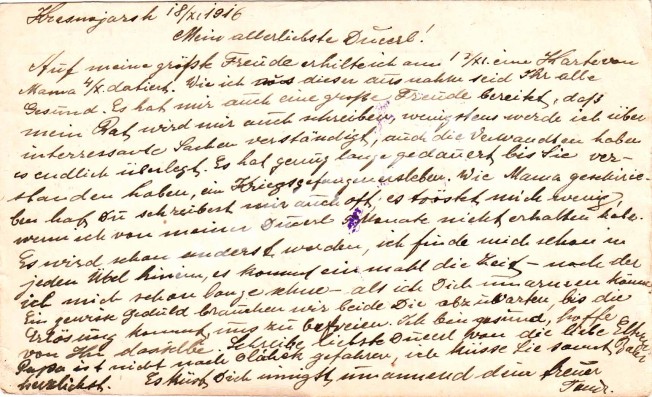 Krasnojarsk 18/XI 1916
Mein allerliebste Ducerl!
Auf meine größte Freude erhielt ich am 12/XI. eine Karte von
Mama 4/X. datiert. Wie ich dieser aus nahm seid Ihr alle
Gesund. Es hat mir auch eine große Freude bereitet, daß
mein Rat wird mir auch schreiben, wenigstens werde ich über
interressante Sachen verständigt, auch die Verwandten haben
es endlich überlegt. Es hat genug lange gedauert bis Sie ver-
standen haben, ein Kriegsgefangenensleben. Wie Mama geschrie-
ben hat, Du schreibest mir auch oft, es tröstet mich wenig,
wenn ich von meiner Ducerl Monate nicht erhalten habe.
Es wird schon anderst werden, ich finde mich schon in
jeden Übel hinein, es kommt ein mahl die Zeit – nach der
ich mich schon lange sehne – als ich Dich umarmen kann.
Ein gewisse geduld brauchen wir beide Die abzuwarten bis die
Erlösung kommt, uns zu befreien. Ich bin gesund, hoffe
von Ihr dasselbe. Schreibe liebste Ducerl von die liebe
Papa ist nicht nach gefahren, ich küsse Sie samt
herzlichst. Es küsst Dich innigst, umarmend dein treuer